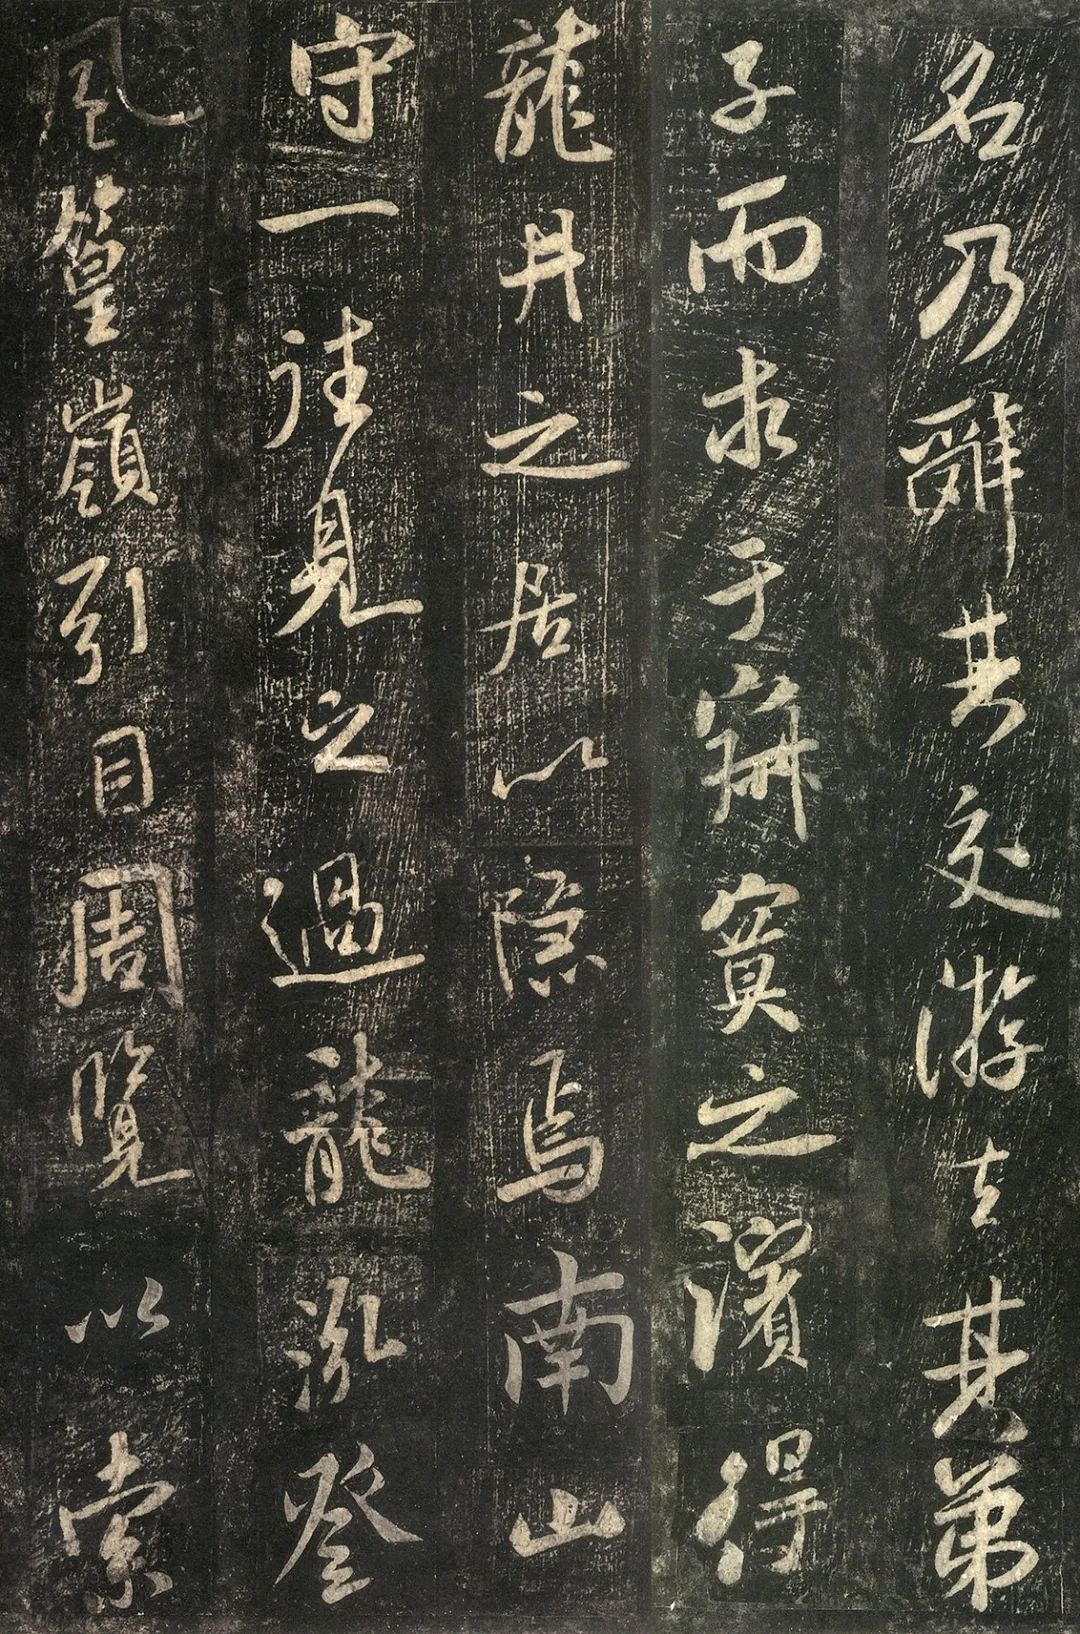 名乃辭其交游去其弟
子而求于寂寞之濱得
龍井之居以隱焉南山
守一往見之過龍泓登
風篁嶺引目周覽以索